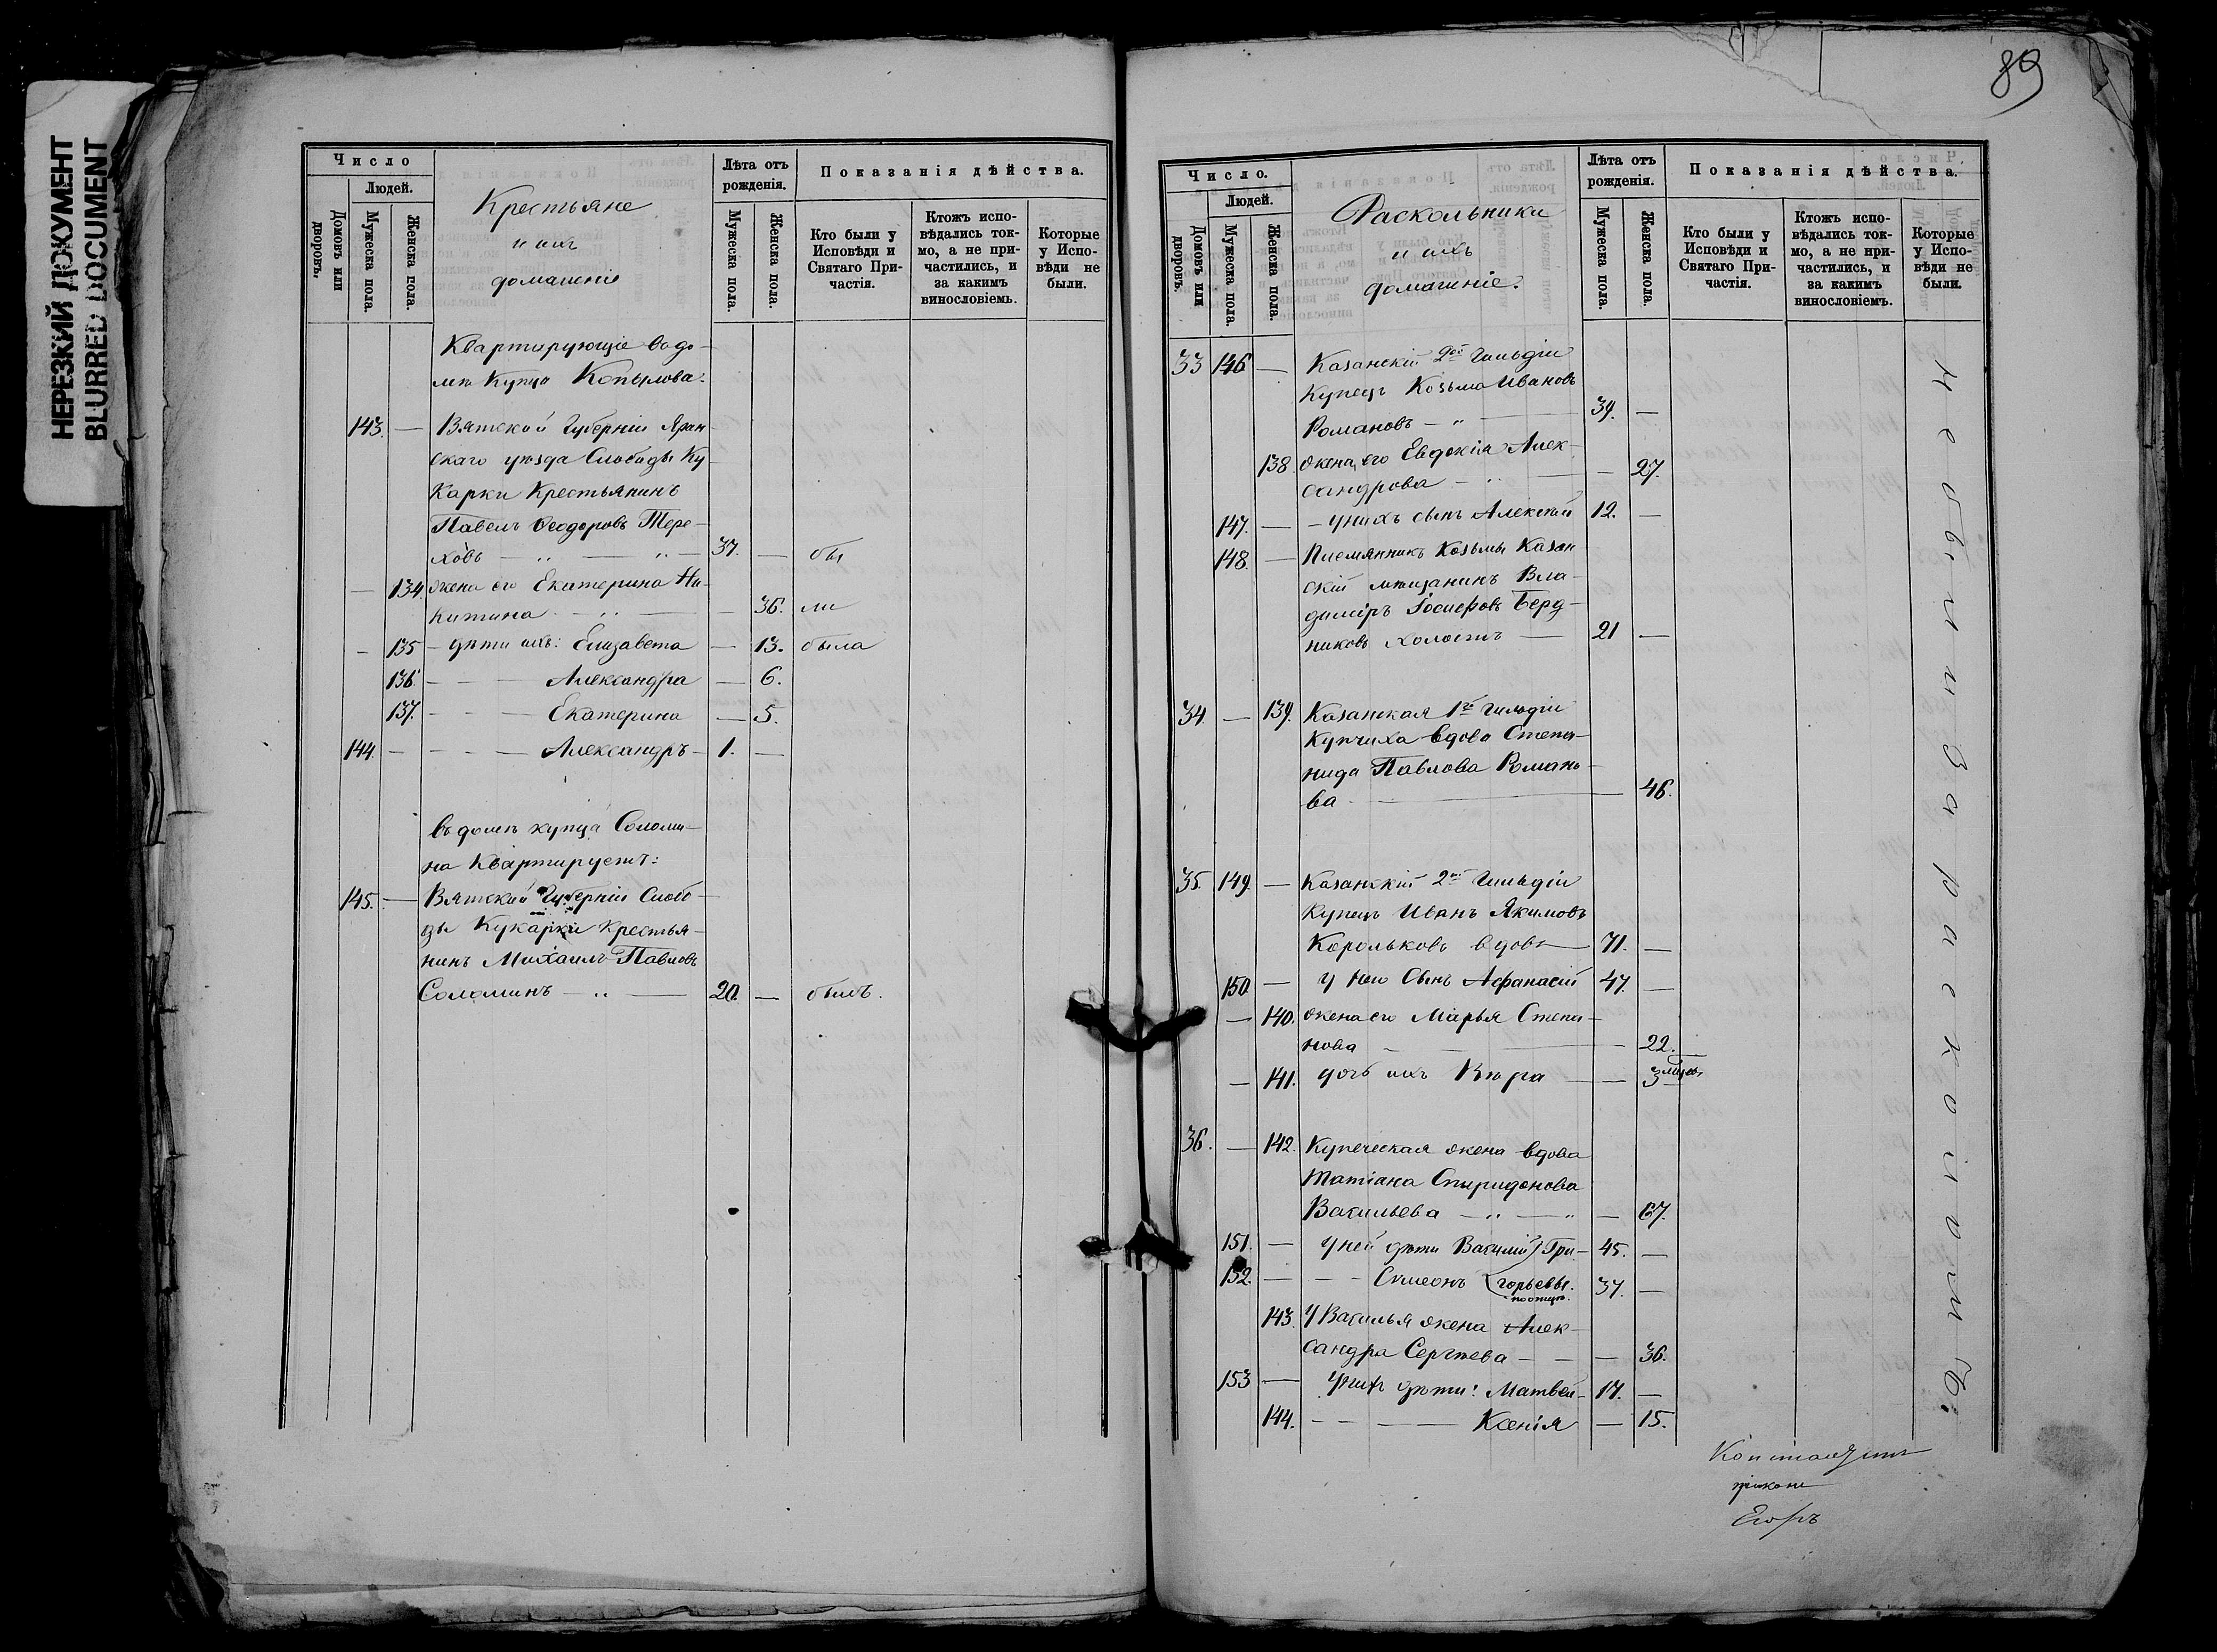 НЕРЕЗКИЙ ДОКУМЕНТ
BLURRED DOCUMENT
Число
Людей.
Домовъ или дворовъ.
Мужеска пола.
Женска пола.
Крестьяне
и ихъ
домашніе
Лѣта отъ рожденія.
Мужеска пола.
Женска пола.
Показанія дѣйства.
Кто были у Исповѣди и Святаго Причастія.
Ктожъ исповѣдались токмо, а не причастились, и за какимъ винословіемъ.
Которые у Исповѣди не были.
Квартирующіе въ до-
мѣ Купца Копылова.
143. — Вятской Губерніи Яран-
скаго уѣзда Слободы Ку-
карки Крестьянинъ
Павелъ Ѳеодоровъ Тере-
ховъ — „ — „ — 37. — бы
— 134. жена его Екатерина Ни-
китина — „ — — 36. ли
— 135 — дѣти ихъ: Елизавета — 13. была
136. — — — Александра — 6.
137. — — — Екатерина — 5.
144. — — — — Александръ — 1. —
въ домѣ купца Соломи-
на Квартируетъ:
145. — Вятской Губерніи Слобо-
ды Кукарки Крестья-
нинъ Михаилъ Павловъ
Соломинъ — „ — 20. — былъ.
89
Число.
Людей.
Домовъ или дворовъ.
Мужеска пола.
Женска пола.
Раскольники
и ихъ
домашніе.
Лѣта отъ рожденія.
Мужеска пола.
Женска пола.
Показанія дѣйства.
Кто были у Исповѣди и Святаго Причастія.
Ктожъ исповѣдались токмо, а не причастились, и за какимъ винословіемъ.
Которые у Исповѣди не были.
33 146 — Казанскій 2ой Гильдіи
Купецъ Козьма Ивановъ
Романовъ — „ — 39. —
138. жена его Евдокія Алек-
сандрова — „ — — 27.
147. — — у нихъ сынъ Алексѣй 12. —
148. — Племянникъ Козьмы Казан-
скій мѣщанинъ Вла-
диміръ Іосифовъ Берд-
никовъ холостъ — 21 —
34. — 139. Казанская 1й Гильдіи
Купчиха вдова Степа-
нида Павлова Романо-
ва — — 46.
35. 149. — Казанскій 2ой Гильдіи
Купецъ Иванъ Якимовъ
Корольковъ вдовъ — 71. —
150 — У него Сынъ Афанасій 47. —
— 140. жена его Марья Степа-
нова — — 22.
— 141. дочь ихъ — 3 мѣся.
36. — 142. Купеческая жена вдова
Татіана Спиридонова
Васильева — „ — „ — 67.
151. — У ней дѣти Василій Гри- 45. —
152. — — — Симеонъ горьевы. 37. —
143. У Василья жена Алек-
сандра Сергѣева — — — 36.
153 — У нихъ дѣти: Матвей — 17. —
144. — — — — Ксенія — 15.
не были за расколомъ.
Егоръ